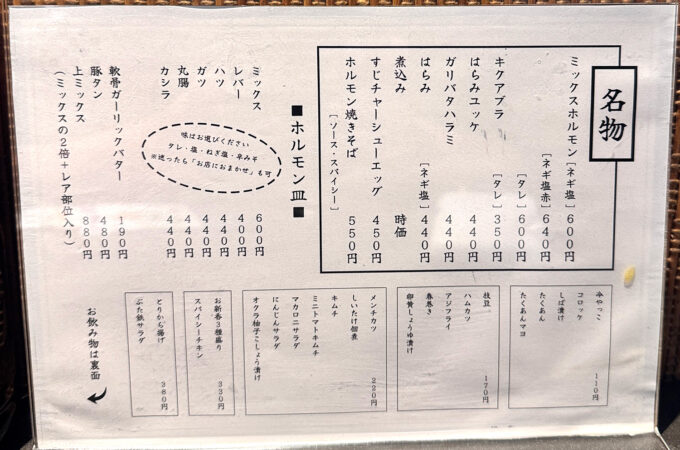 名物
ミックスホルモン[ネギ塩]600円
[ネギ塩赤]640円
[タレ]600円
キクアブラ[タレ]350円
はらみユッケ440円
ガリバタハラミ440円
はらみ[ネギ塩]440円
煮込み時価
すじチャーシューエッグ450円
ホルモン焼きそば550円
[ソース・スパイシー]
■ホルモン皿■
味はお選びください
タレ・塩・ねぎ塩・辛みそ
※迷ったら「お店におまかせ」も可
ミックス600円
レバー400円
ハツ440円
ガツ440円
丸腸440円
カシラ440円
軟骨ガーリックバター190円
豚タン480円
上ミックス880円
(ミックスの2倍+レア部位入り)
冷やっこ
コロッケ
しば漬け
たくあん
たくあんマヨ
110円
枝豆
ハムカツ
アジフライ
春巻き
卵黄しょうゆ漬け
170円
メンチカツ
しいたけ佃煮
キムチ
ミニトマトキムチ
マカロニサラダ
にんじんサラダ
オクラ柚子こしょう漬け
220円
お新香3種盛り
スパイシーチキン
330円
とりから揚げ
ぶた鉄サラダ
380円
お飲み物は裏面